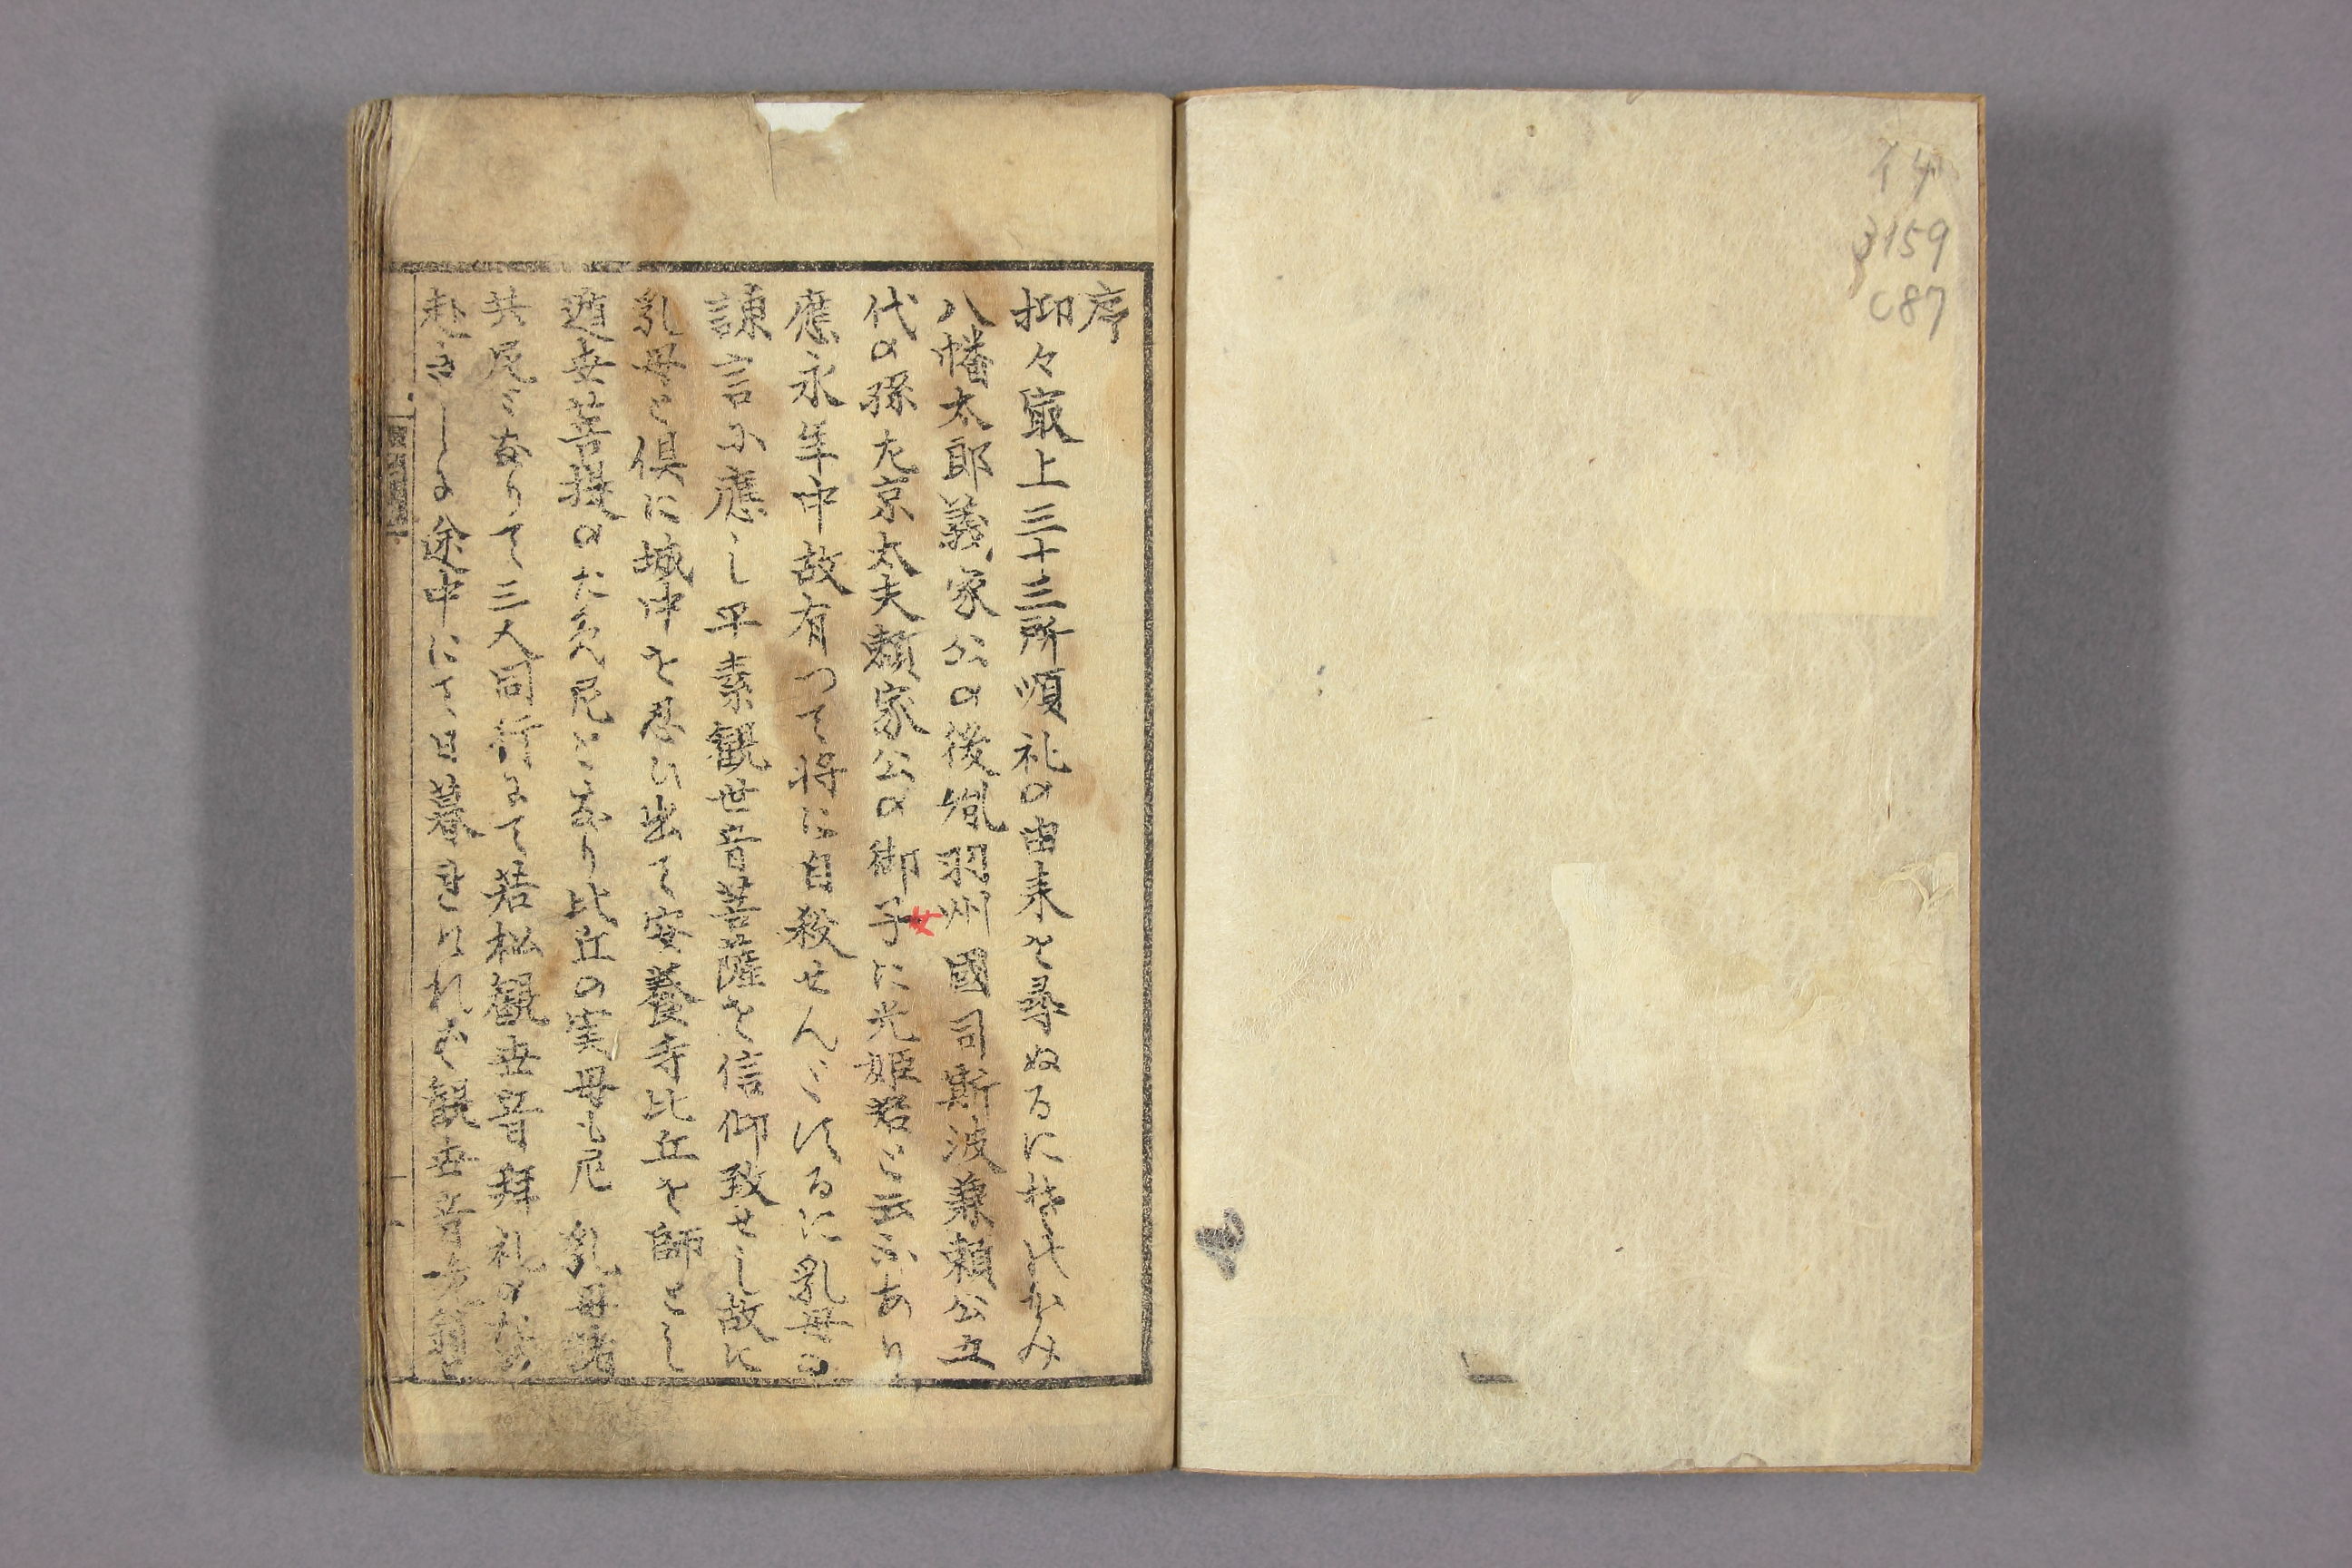 イ4
3159
C87
序
抑々冣上三十三所順礼の由来を尋ぬるにそのかみ
八幡太郎義家公の後胤羽州國司斯波兼頼公五
代の孫左京太夫頼家公の御子に光姫君と云ふあり
女
應永年中故有つて将に自殺せんとするに乳母の
諫言に應し平素観世音菩薩を信仰致せし故に
乳母と倶に城中を忍ひ出て安養寺比丘を師とし
遁世菩提のため尼となり比丘の実母も尼 乳母諸
共尼となりて三人同行にて若松観世音拜礼のため
赴きしに途中にて日暮れけれど観世音